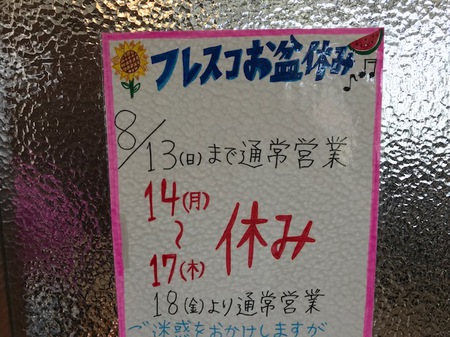 フレスコお盆休み
8/13(日)まで通常営業
14(月)
〜
17(木)
休み
18(金)より通常営業
ご迷惑をおかけしますが